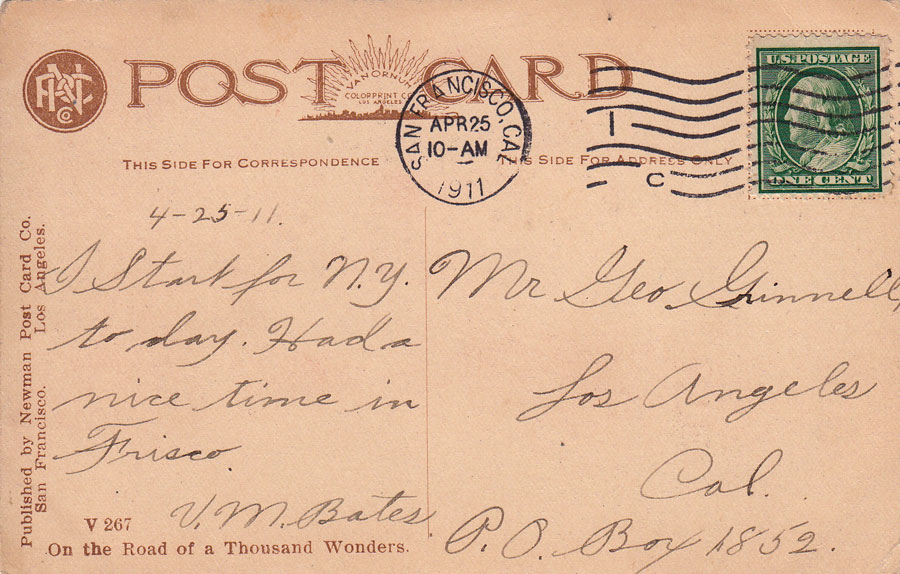 POST CARD
VAN ORNUM
COLORPRINT CO.
LOS ANGELES
SAN FRANCISCO, CAL.
APR 25
10-AM
1911
1
C
U.S. POSTAGE
ONE CENT
THIS SIDE FOR CORRESPONDENCE
THIS SIDE FOR ADDRESS ONLY
4-25-11.
I Start for N.Y.
to day. Had a
nice time in
Frisco
V. M. Bates
Mr Geo Grinnell,
Los Angeles
Cal.
P. O. Box 1852.
Published by Newman Post Card Co.
San Francisco. Los Angeles.
V 267
On the Road of a Thousand Wonders.